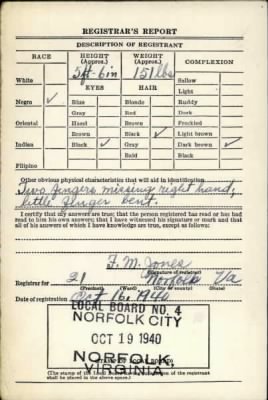 REGISTRAR'S REPORT
DESCRIPTION OF REGISTRANT
RACE HEIGHT (Approx.) WEIGHT (Approx.) COMPLEXION
5ft-6in 151 lbs
EYES HAIR
White Sallow
Light
Negro ✓ Blue Blonde Ruddy
Gray Red Dark
Oriental Hazel Brown Freckled
Brown Black ✓ Light brown
Indian Black ✓ Gray Dark brown ✓
Bald Black
Filipino
Other obvious physical characteristics that will aid in identification
Two fingers missing right hand,
little finger bent.
I certify that my answers are true; that the person registered has read or has had
read to him his own answers; that I have witnessed his signature or mark and that
all of his answers of which I have knowledge are true, except as follows:
F. M. Jones
(Signature of registrar)
Registrar for 21 Norfolk Va
(Precinct) (Ward) (City or county) (State)
Date of registration Oct 16, 1940
LOCAL BOARD NO. 4
NORFOLK CITY
OCT 19 1940
NORFOLK,
VIRGINIA
(STAMP OF LOCAL BOARD)
(The stamp of the Local Board having jurisdiction of the registrant
shall be placed in the above space.)